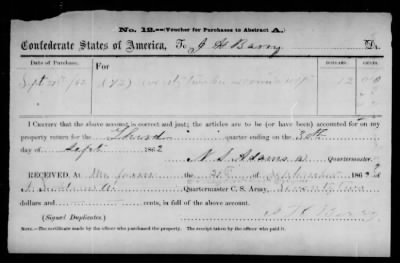 No. 12.—(Voucher for Purchases to Abstract A.)
Confederate States of America, To J H Barry Dr.
Date of Purchase. For
Sept 21st /62 (72) Seventy two 72 00
I CERTIFY that the above account is correct and just; the articles are to (or have been) accounted for on
my property return for the Third quarter ending on the 30th
day of Sept 1862
N. S. Adams Quartermaster.
RECEIVED, At the 21st September 1862
Quartermaster C. S. Army, Seventy two
dollars and cents, in full of the above account.
(Signed Duplicates.) J H Barry
NOTE.—The certificate made by the officer who purchased the property. The receipt taken by the officer who paid it.